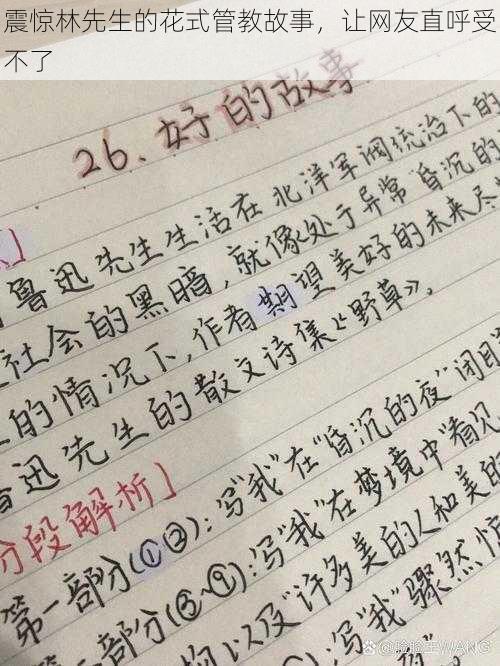 震惊林先生的花式管教故事，让网友直呼受
不了
26.好的故事
鲁迅先生生活在北洋军阀统治下的
社会的黑暗,就像处于异常昏沉的
的情况下,作者期望美好的未来尽
迅先生的散文诗集《野草》.
分段解析】
第一部分(①②):写"我"在"昏沉的夜"闭目
部分(③~⑨):写"我"在梦境中"看见
以及"许多美的人和美的
写"我"骤然惊